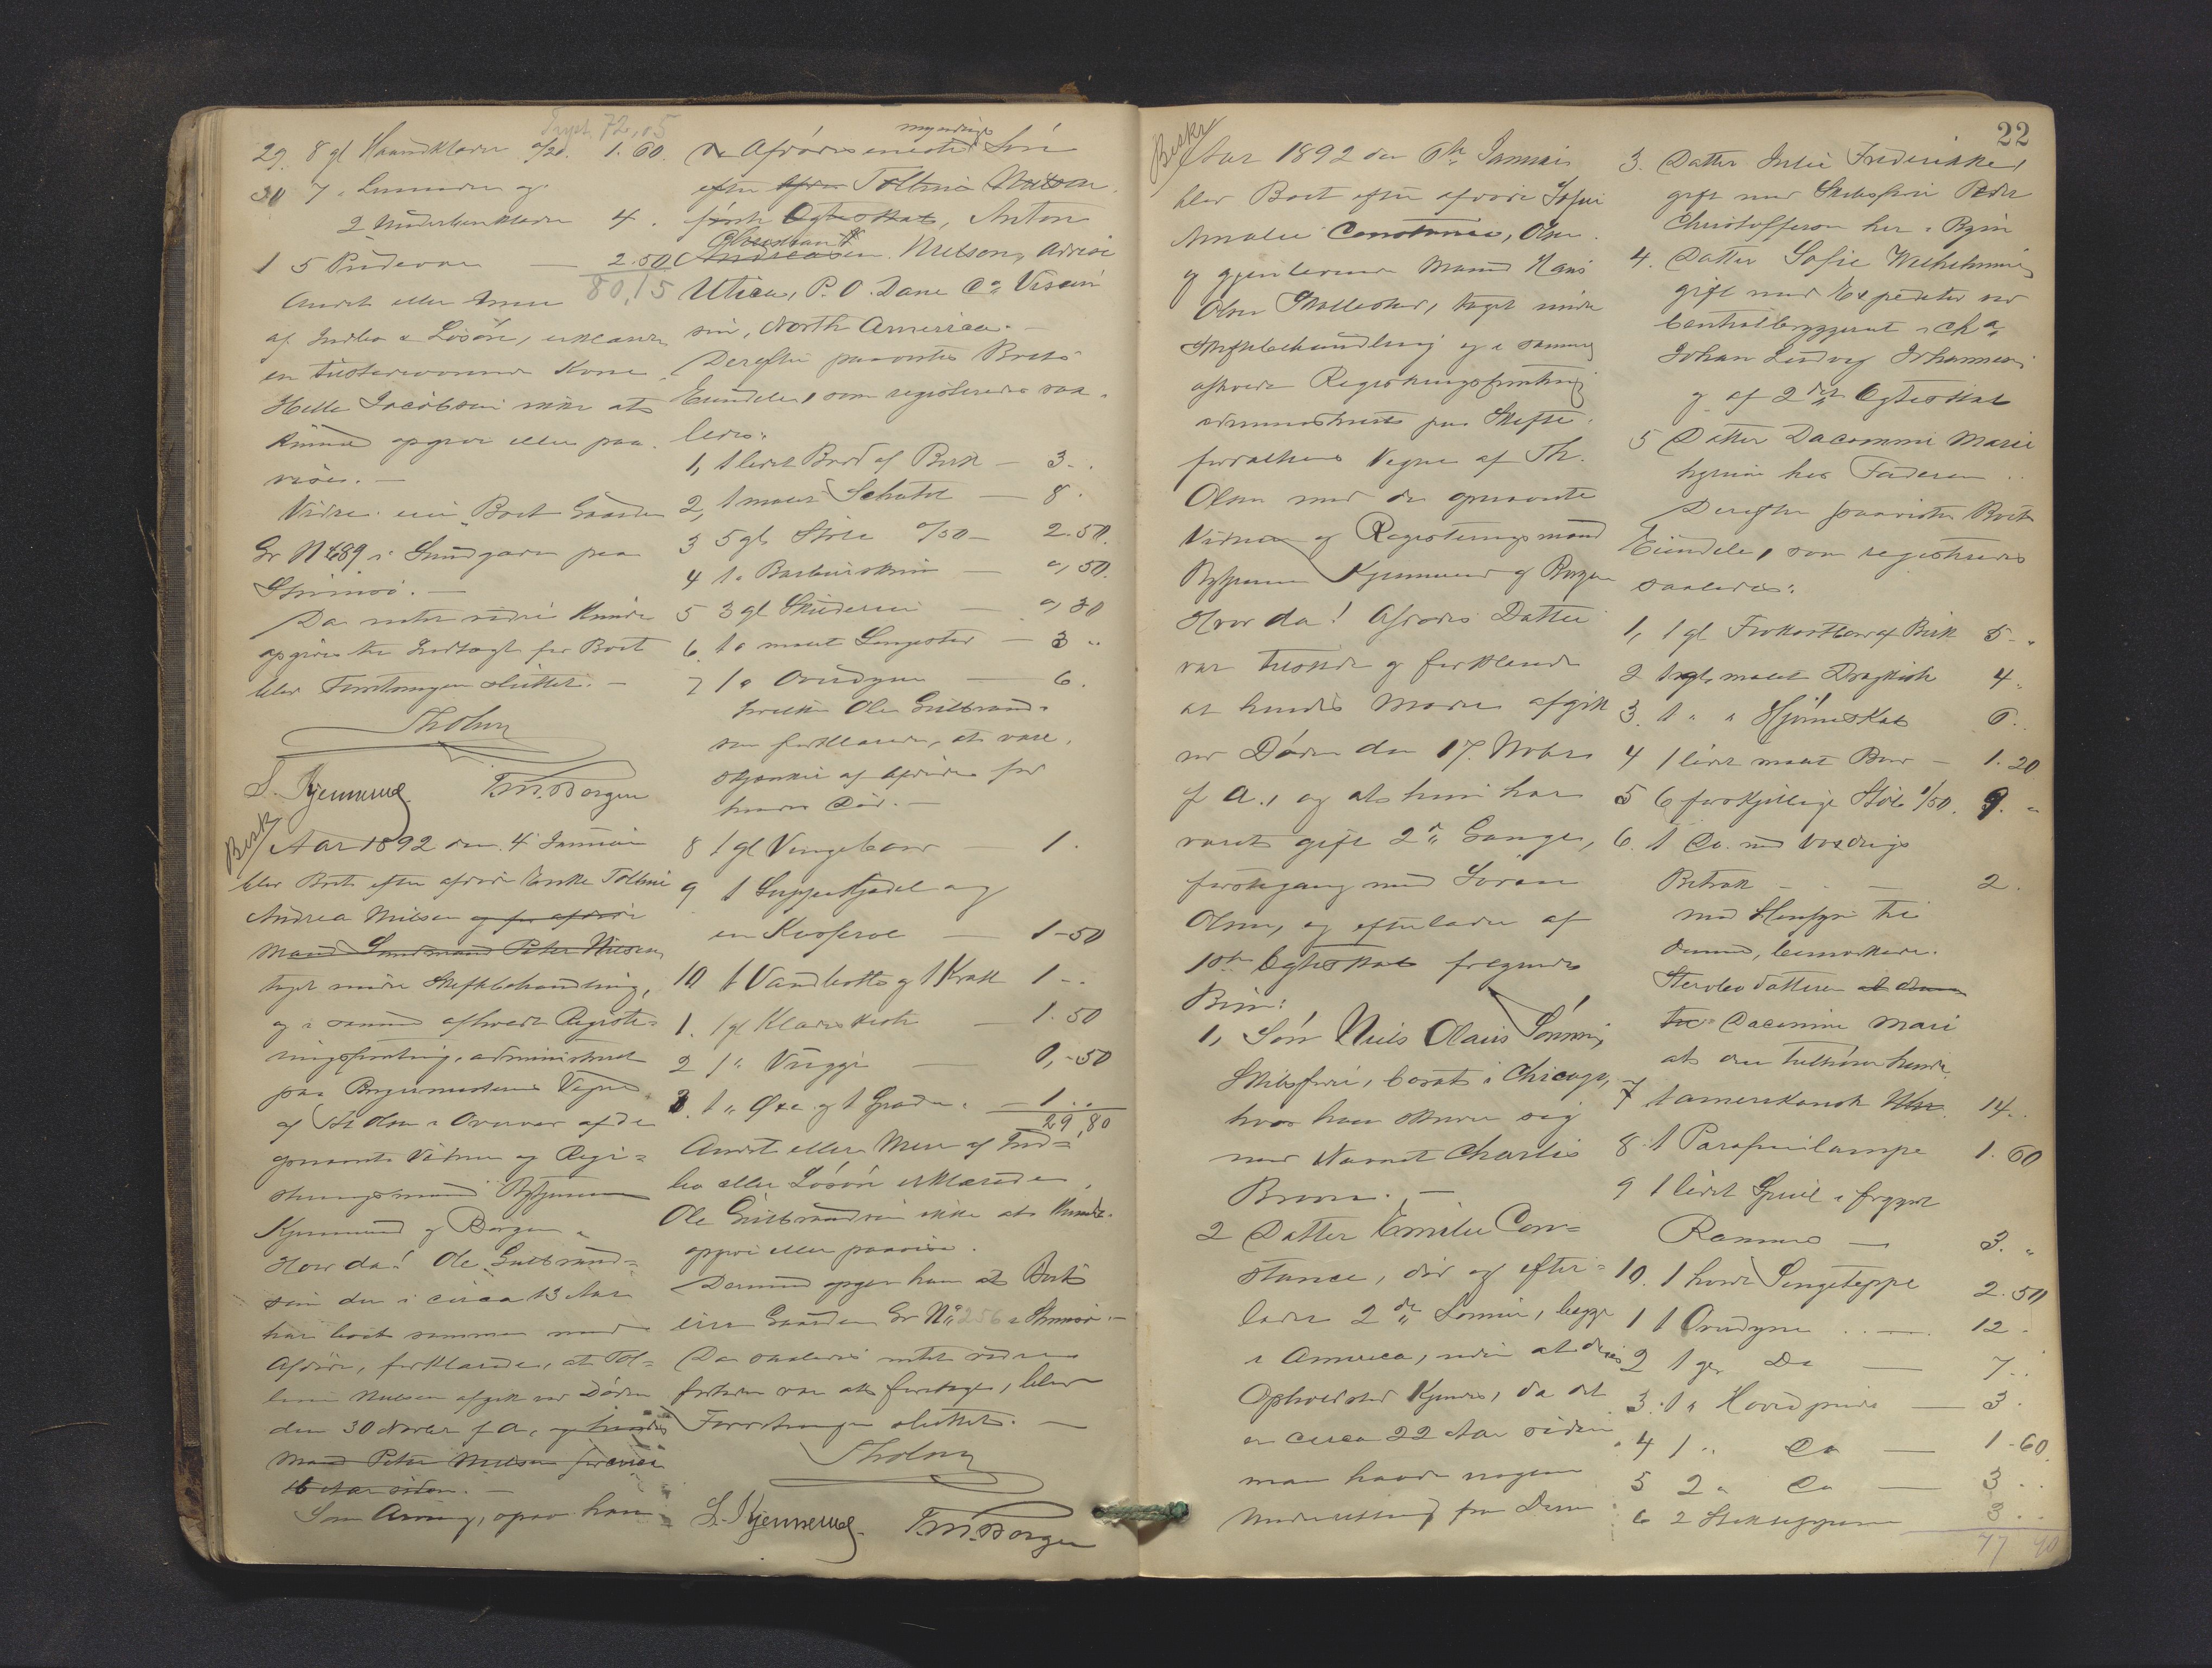 Trspt. 72,05
29. 8 gl Haandklæder a/20. 1.60.
30 7 " Linneder og
2 Underbenklæder 4.
1 5 Pudevar — 2.50
80,15
Andet eller mere
af Indbo & Løsøre, erklærede
en tilstedeværende Kone
Helle Jacobsen ikke at
kunne opgive eller paa-
vise. —
Videre eier Boet Gaarden
Gr No 689 i Grundgaden paa
Strømsø. —
Da intet videre kunde
opgives til Indtægt for Boet
blev Forretningen sluttet. —
Th Olsen
S. Kjennerud. T. M. Borgen
Besk
Aar 1892 den 4 Januar
blev Boet efter afdøde Enke Tolline
Andrea Nielsen og før afdøde
Mand Sandmand Peter Nielsen,
taget under Skiftebehandling,
og i samme afholdt Registe-
ringsforretning, administreret
paa Borgermesterens Vegne
af Th Olsen i Overvær af de
opnævnte Vidner og Regi-
streringsmænd
Kjennerud og Borgen.
Hvor da! Ole Gulbrand-
sen der i circa 13 Aar
har boet sammen med
Afdøde, forklarede, at Tol-
line Nielsen afgik ved Døden
den 30 Novbr f. A., og hendes
Mand Peter Nielsen for circa
16 Aar siden. —
Som Arving, opgav han
myndige
de Afdødes eneste Søn
efter Tolline Nielsen
første Ægteskab, Anton
Christian
Andreasen Nielson, Adresse
Utica, P. O. Dane Co Viscon
sin, North America. —
Derefter paavistes Boets
Eiendele, som registreredes saa-
ledes:
1, 1 lidet Bord af Birk — 3..
2, 1 malet Schatol — 8.
3 5 gl. Stole a/50 — 2.50.
4 1 " — 0,50.
5 3 gl Skilderier — 0,30
6. 1 " malet Sengested — 3 ..
7 1 " Overdyne — 6.
hvilke Ole Gulbrand-
sen forklarede, at være
skjænket af Afdøde før
hendes Død. —
8 1 gl Vingebord — 1.
9 1 Suppekjedel og
en — 1-50
10 1 Vandbøtte og 1 Krak 1 -.
1. 1 gl Klædeskiste — 1.50
2 1 " Vugge — 0,-50
3. 1 " Øxe og 1 — 1..
29,80
Andet eller Mere af Ind-
bo eller Løsøre erklærede
Ole Gulbrandsen ikke at kunde
opgive eller paavise.
Dermed opgav han at Boet
eier Gaarden Gr No 256 i Strømsø. —
Da saaledes intet videre
fortiden var at foretage, blev
Forretningen sluttet. —
Th Olsen
S. Kjennerud. T. M. Borgen
22
Beskr
Aar 1892 den 6te Januar
blev Boet efter afdøde Sofie
Amalie Constance, Olsen
og gjenlevende Mand Hans
Olsen Skallestad, taget under
Skiftebehandling og i samme
afholdt Registreringsforretning
administreret paa Skifte-
forvalterens Vegne af Th.
Olsen med de opnævnte
Vidner og Registreringsmænd
Kjennerud og Borgen
Hvor da! Afdødes Datter
var tilstede og forklarede
at hendes Moder afgik
ved Døden den 17. Novbr
f. A., og at hun har
været gift 2de Gange,
første gang med Søren
Olsen, og efterlader af
1ste Ægteskab følgende
Børn:
1, Søn Niels Olaus Sørensen,
Skibsfører, bosat i Chicago,
hvor han skriver sig
med Navnet Charlis
Brown. —
2 Datter Emilie Con-
stance, død og efter-
lader 2de Sønner, begge
i America, uden at deres
Opholdssted kjendes, da det
er circa 22 Aar siden
man havde nogen
Underretning fra Dem
3. Datter Julie Fredrikke,
gift med Skibsfører Peder
Christoffersen her i Byen
4. Datter Sofie Wilhelmine
gift med Expeditør ved
Centralbryggeriet i Chra
Johan Ludvig Johannesen
og af 2det Ægteskab
5 Datter Dacomine Marie
hjemme hos Faderen ..
Derefter paavistes Boets
Eiendele, som registreredes
saaledes:
1, 1 gl. Frokostbord af Birk 5 - "
2 1 gl. malet Dragkiste 4 "
3. 1 " " Hjørneskab 6.
4 1 lidet malet Bord — 1.20
5 6 forskjellige Stole 1/50. 9. "
6. 1 Do. med Voxdugs
Betræk — 2.
med Hensyn til
denne, bemærkede
Stervbodatteren at denne
Dacomine Mari
at den tilhører hende
7 1 amerikansk Uhr. 14..
8. 1 Parafinlampe 1.60
9 1 lidet Speil i forgyldt
Ramme — 3. "
10. 1 hvidt Sengeteppe 2.50
1 1 Overdyne — 12 -
2 1 gl Do — 7..
3. 1 " Hovedpude — 3.
4 1 " Do — 1.60.
5 2 " Do — 3 ..
6 2 3..
77 90